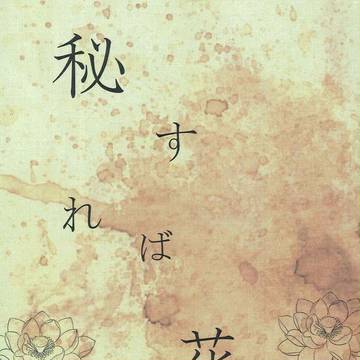 秘すれば花